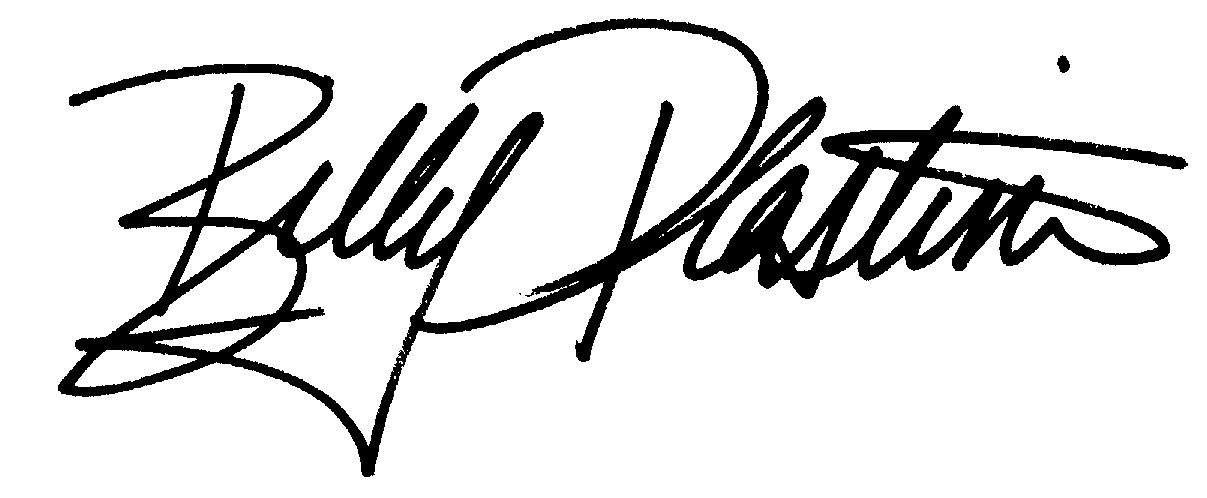 Billy Plastini